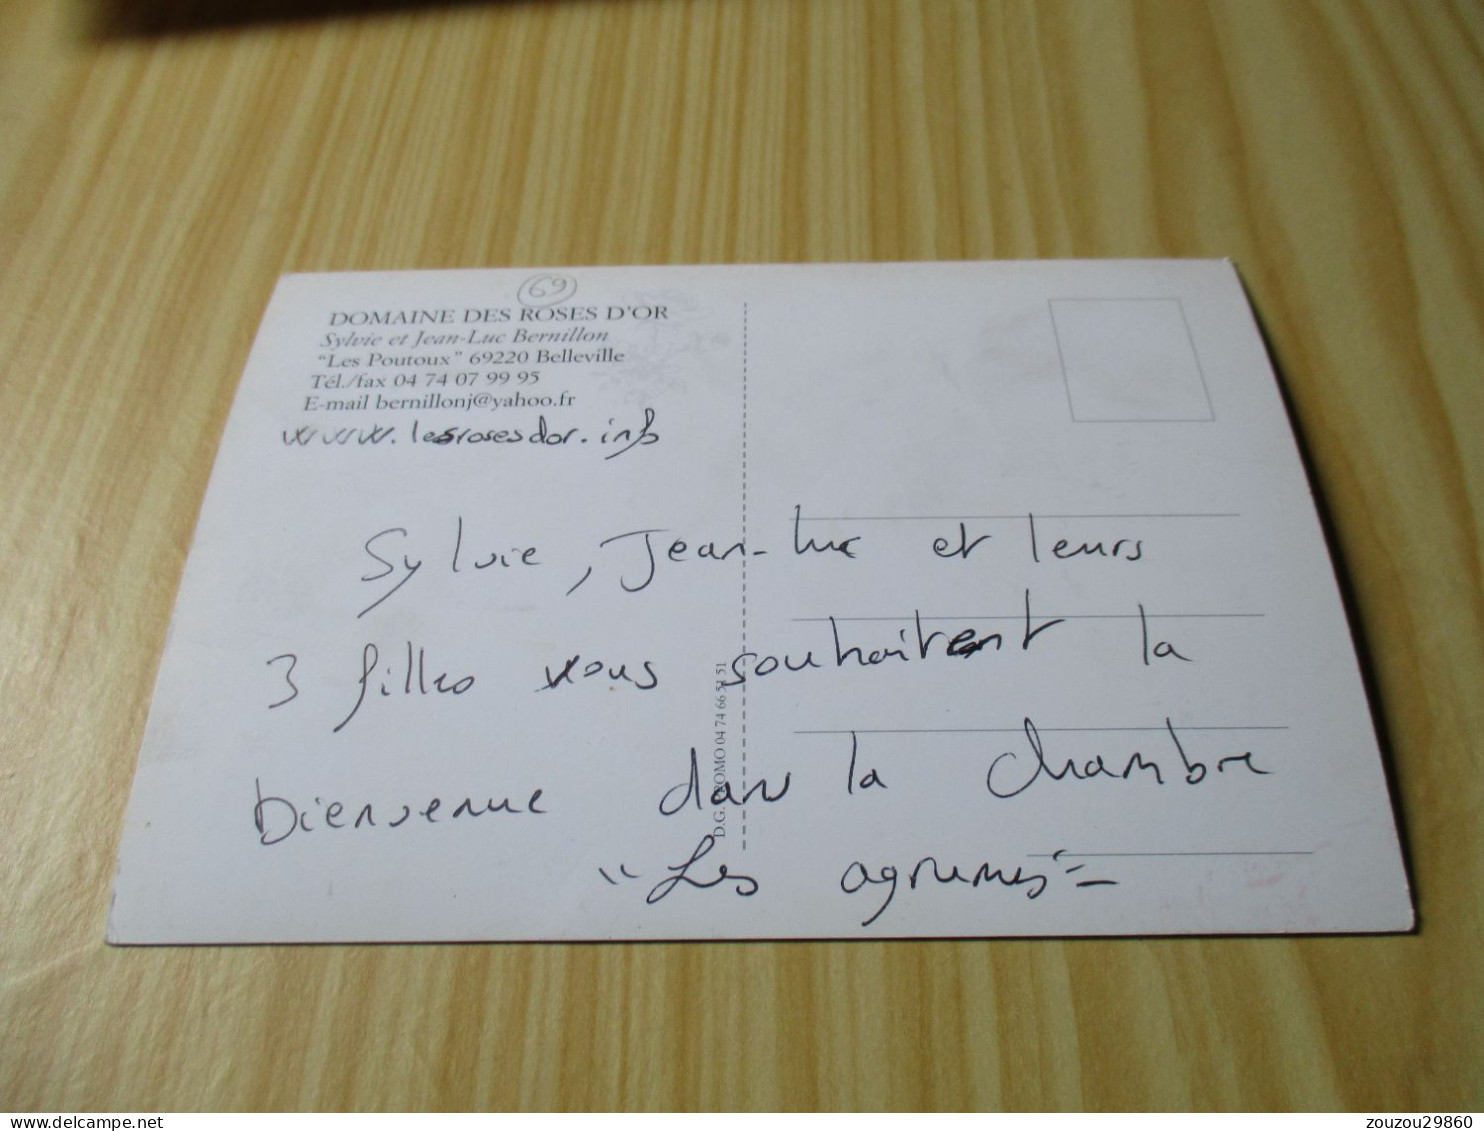 69
DOMAINE DES ROSES D'OR
Sylvie et Jean-Luc Bernillon
"Les Poutoux" 69220 Belleville
Tél./fax 04 74 07 99 95
E-mail bernillonj@yahoo.fr
www.lesrosesdor.info
Sylvie, Jean-Luc et leurs
3 filles vous souhaitent la
bienvenue dans la chambre
"Les agrumes"
D.G. PROMO 04 74 66 51 51
zouzou29860